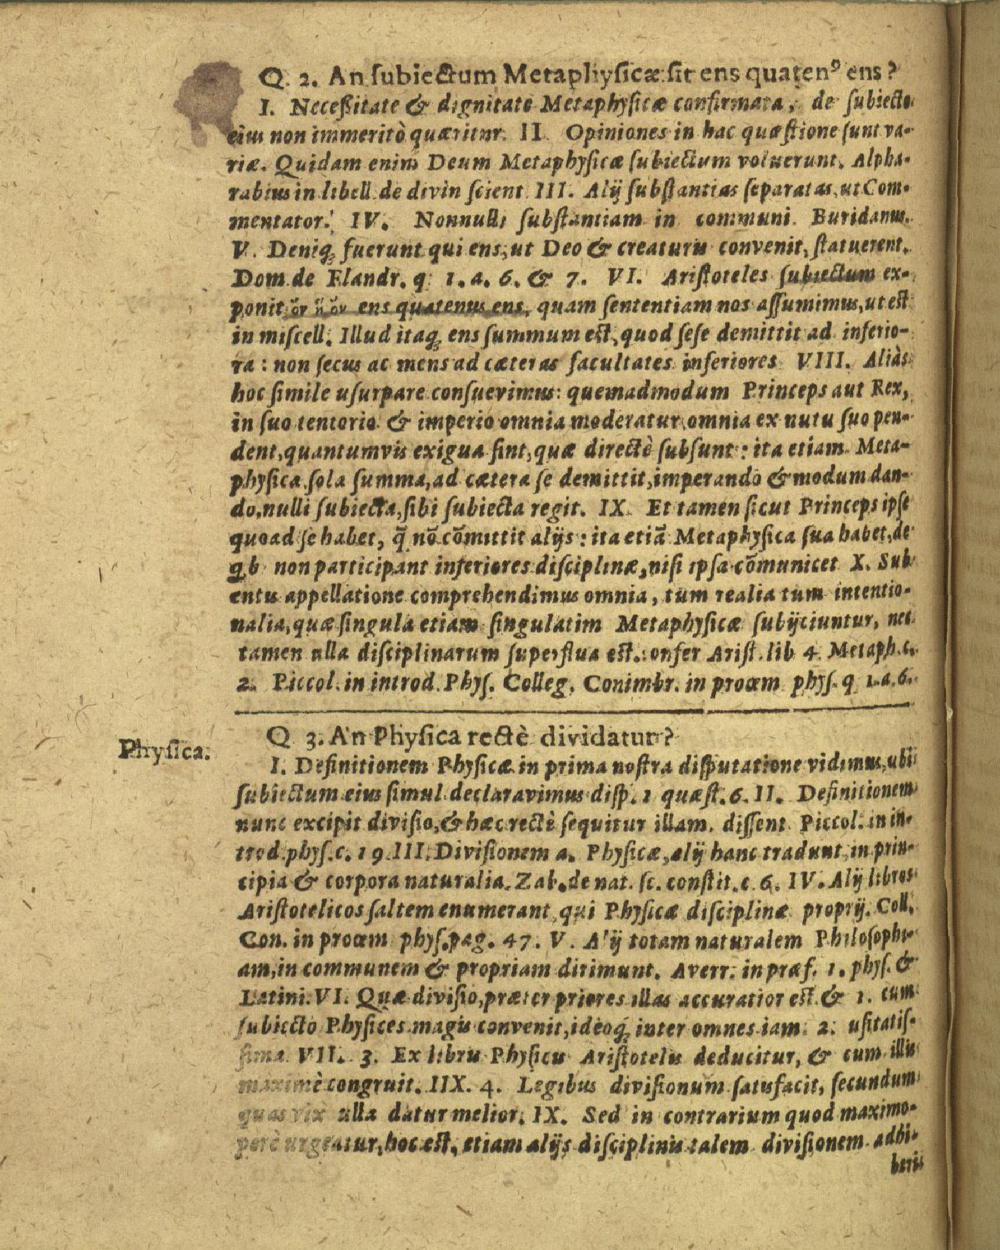 Q. 2. An ſubiectum Metaphyſicæ ſit ens quatenꝰ ens?
I. Neceßitate & dignitate Metaphyſicæ confirmata, de ſubiecto
eius non immeritò quæritur. II. Opiniones in hac quæſtione ſunt va-
riæ. Quidam enim Deum Metaphyſicæ ſubiectum voluerunt. Alpha-
rabius in libell. de divin ſcient. III. Alij ſubſtantias ſeparatas, ut Com-
mentator. IV. Nonnulli ſubſtantiam in communi. Buridanus.
V. Deniq; fuerunt qui ens, ut Deo & creaturis convenit, ſtatuerent.
Dom. de Flandr. q. 1. a. 6. & 7. VI. Ariſtoteles ſubiectum ex-
ponit ὂν ᾗ ὂν ens quatenus ens, quam ſententiam nos aſſumimus, ut eſt
in miſcell. Illud itaq; ens ſummum eſt, quod ſeſe demittit ad inferio-
ra: non ſecus ac mens ad cæteras facultates inferiores. VIII. Aliàs
hoc ſimile uſurpare conſuevimus: quemadmodum Princeps aut Rex,
in ſuo tentorio & imperio omnia moderatur, omnia ex nutu ſuo pen-
dent, quantumvis exigua ſint, quæ directè ſubſunt: ita etiam Meta-
phyſica, ſola ſumma, ad cætera ſe demittit, imperando & modum dan-
do, nulli ſubiecta, ſibi ſubiecta regit. IX. Et tamen ſicut Princeps ipſe
quoad ſe habet, q̃ nõ cõmittit alijs: ita etiã Metaphyſica ſua habet, de
qꝫb non participant inferiores diſciplinæ, niſi ipſa cõmunicet. X. Sub
entis appellatione comprehendimus omnia, tum realia tum intentio-
nalia, quæ ſingula etiam ſingulatim Metaphyſicæ ſubijciuntur, nec
tamen ulla diſciplinarum ſuperflua eſt. confer Ariſt. lib 4. Metaph. c.
2. Piccol. in introd. Phyſ. Colleg. Conimbr. in proœm phyſ. q 1. a. 6.
Q. 3. An Phyſica rectè dividatur?
Phyſica.
I. Definitionem Phyſicæ in prima noſtra diſputatione vidimus, ubi
ſubiectum eius ſimul declaravimus diſp. 1 quæſt. 6. II. Definitionem
nunc excipit diviſio, & hæc rectè ſequitur illam. diſſent Piccol. in in-
trod. phyſ. c. 19. III. Diviſionem a. Phyſicæ, alij hanc tradunt, in prin-
cipia & corpora naturalia. Zab. de nat. ſc. conſtit. c. 6. IV. Alij libros
Ariſtotelicos ſaltem enumerant, qui Phyſicæ diſciplinæ proprij. Coll.
Con. in proœm phyſ. pag. 47. V. Alij totam naturalem Philoſophi-
am, in communem & propriam dirimunt. Averr. in præf. 1. phyſ. &
Latini. VI. Quæ diviſio, præter priores illas accuratior eſt & 1. cum
ſubiecto Phyſices magis convenit, ideoq; inter omnes iam. 2. uſitatiſ-
ſima. VII. 3. Ex libris Phyſicis Ariſtotelis deducitur, & cum illis
maximè congruit. IIX. 4. Legibus diviſionum ſatisfacit, ſecundum
quas vix ulla datur melior. IX. Sed in contrarium quod maximo-
perè urgeatur, hoc eſt, etiam alijs diſciplinis talem diviſionem adhi-
beris